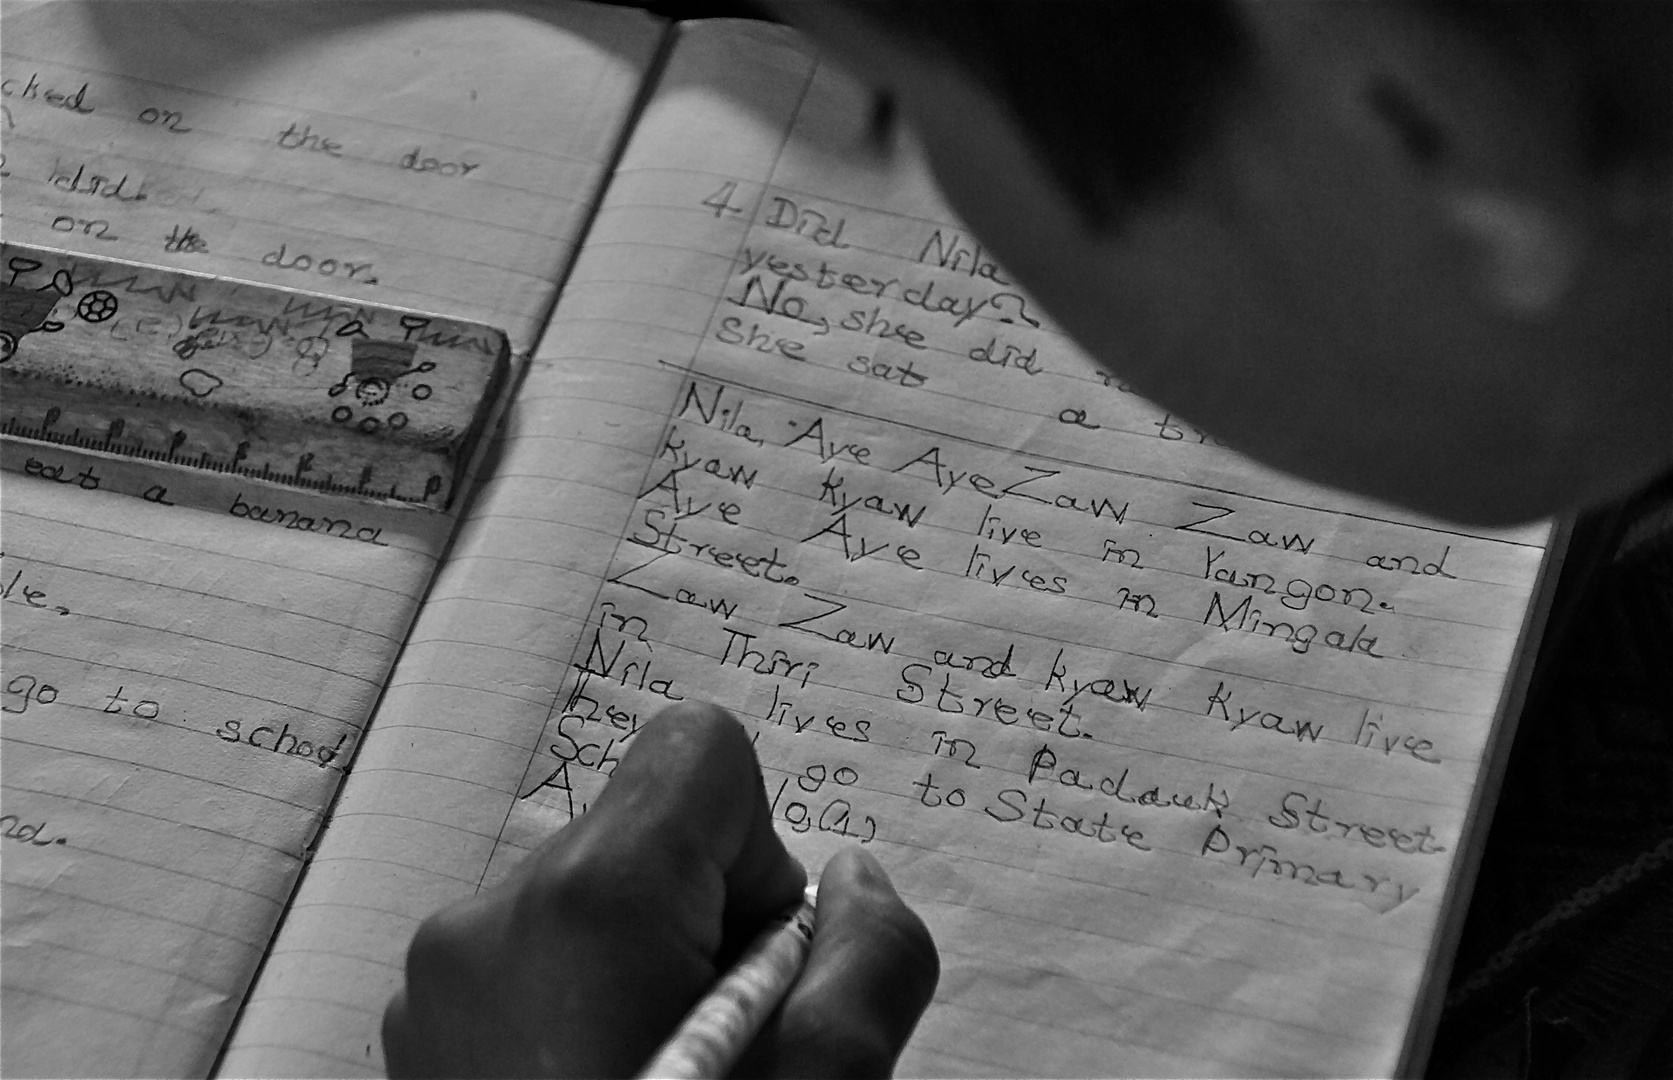 on the door
did.
on the door.
eat a banana
go to school
4 Did Nila
yesterday?
No, she did
She sat a
Nila, Aye Aye Zaw Zaw and
Kyaw Kyaw live in Yangon.
Aye Aye lives in Mingala
Street.
Zaw Zaw and Kyaw Kyaw live
in Thiri Street.
Nila lives in Padauk Street.
they go to State Primary